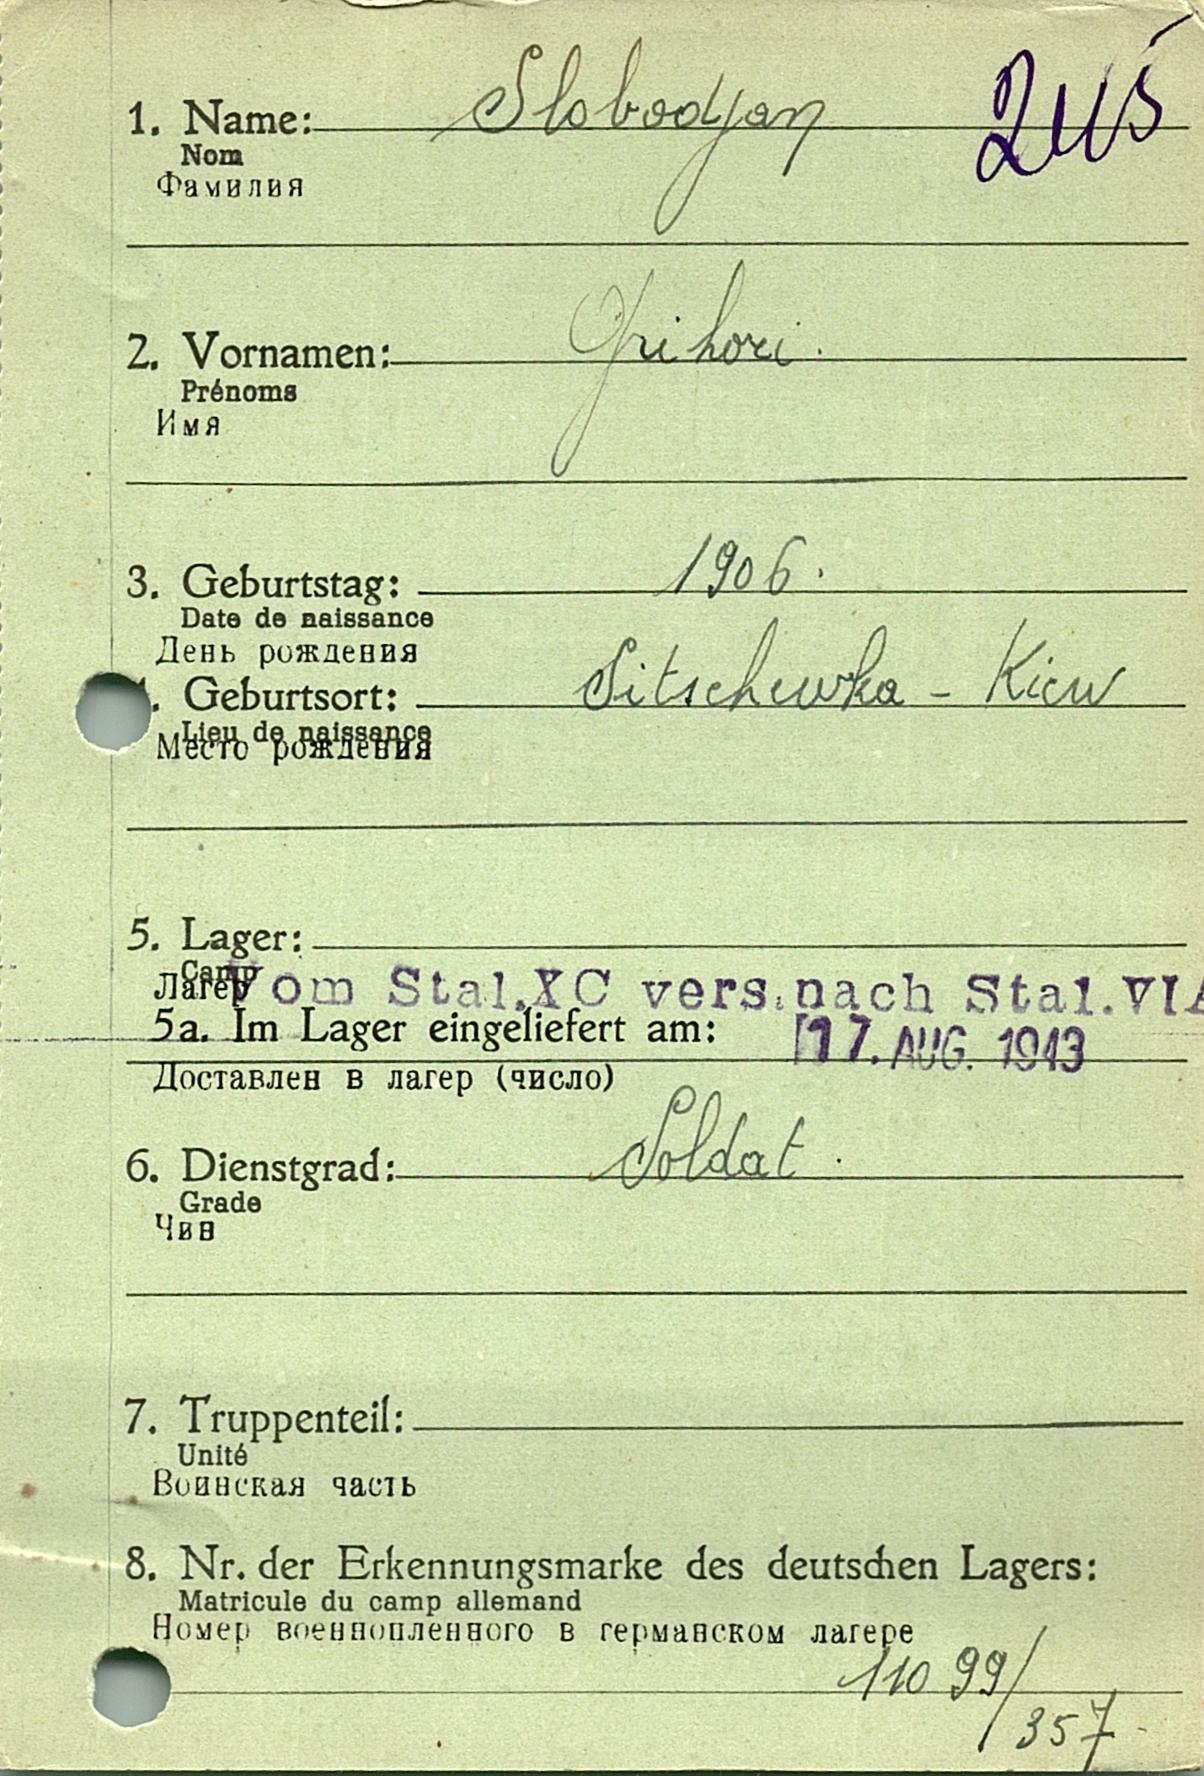 1. Name: Slobodjan
Nom
Фамилия
2. Vornamen: Grihori.
Prénoms
Имя
3. Geburtstag: 1906.
Date de naissance
День рождения
. Geburtsort: Sitschewka - Kiew
Lieu de naissance
Место рождения
5. Lager:
Camp
Лагер
Vom Stal.XC vers. nach Stal.VIA
5a. Im Lager eingeliefert am: 17. AUG. 1943
Доставлен в лагер (число)
6. Dienstgrad: Soldat.
Grade
Чин
7. Truppenteil:
Unité
Воинская часть
8. Nr. der Erkennungsmarke des deutschen Lagers:
Matricule du camp allemand
Номер военнопленного в германском лагере
11099/
357